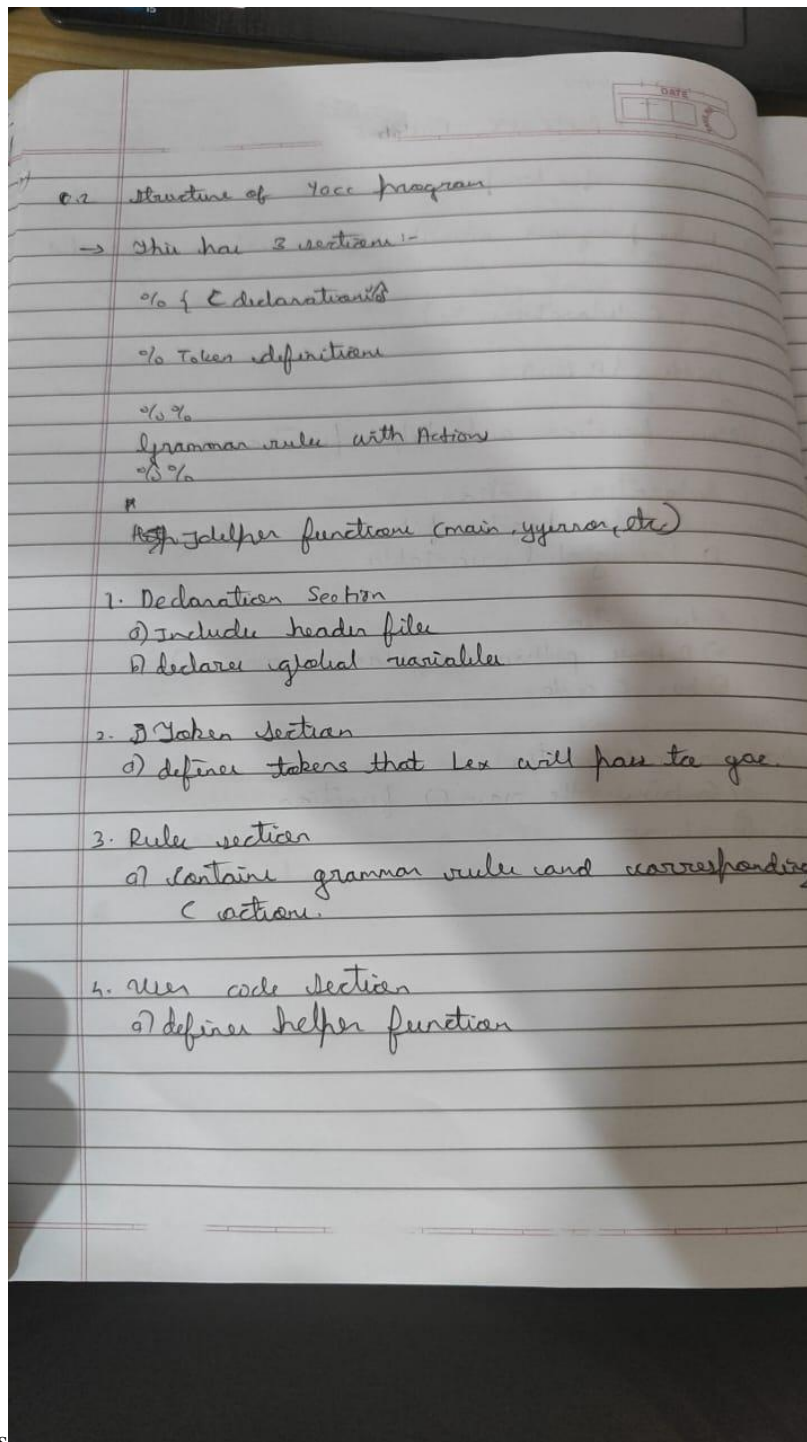 DATE
Q.2 Structure of Yacc program
→ This has 3 sections:-
% { C declarations
% Token definitions
%%
Grammar rules with Actions
%%
Helper functions (main, yyerror, etc)
1. Declaration Section
a) Includes header files
b) declares global variables
2. Token section
a) defines tokens that Lex will pass to yac.
3. Rules section
a) Contains grammar rules and corresponding
C actions.
4. User code section
a) defines helper function